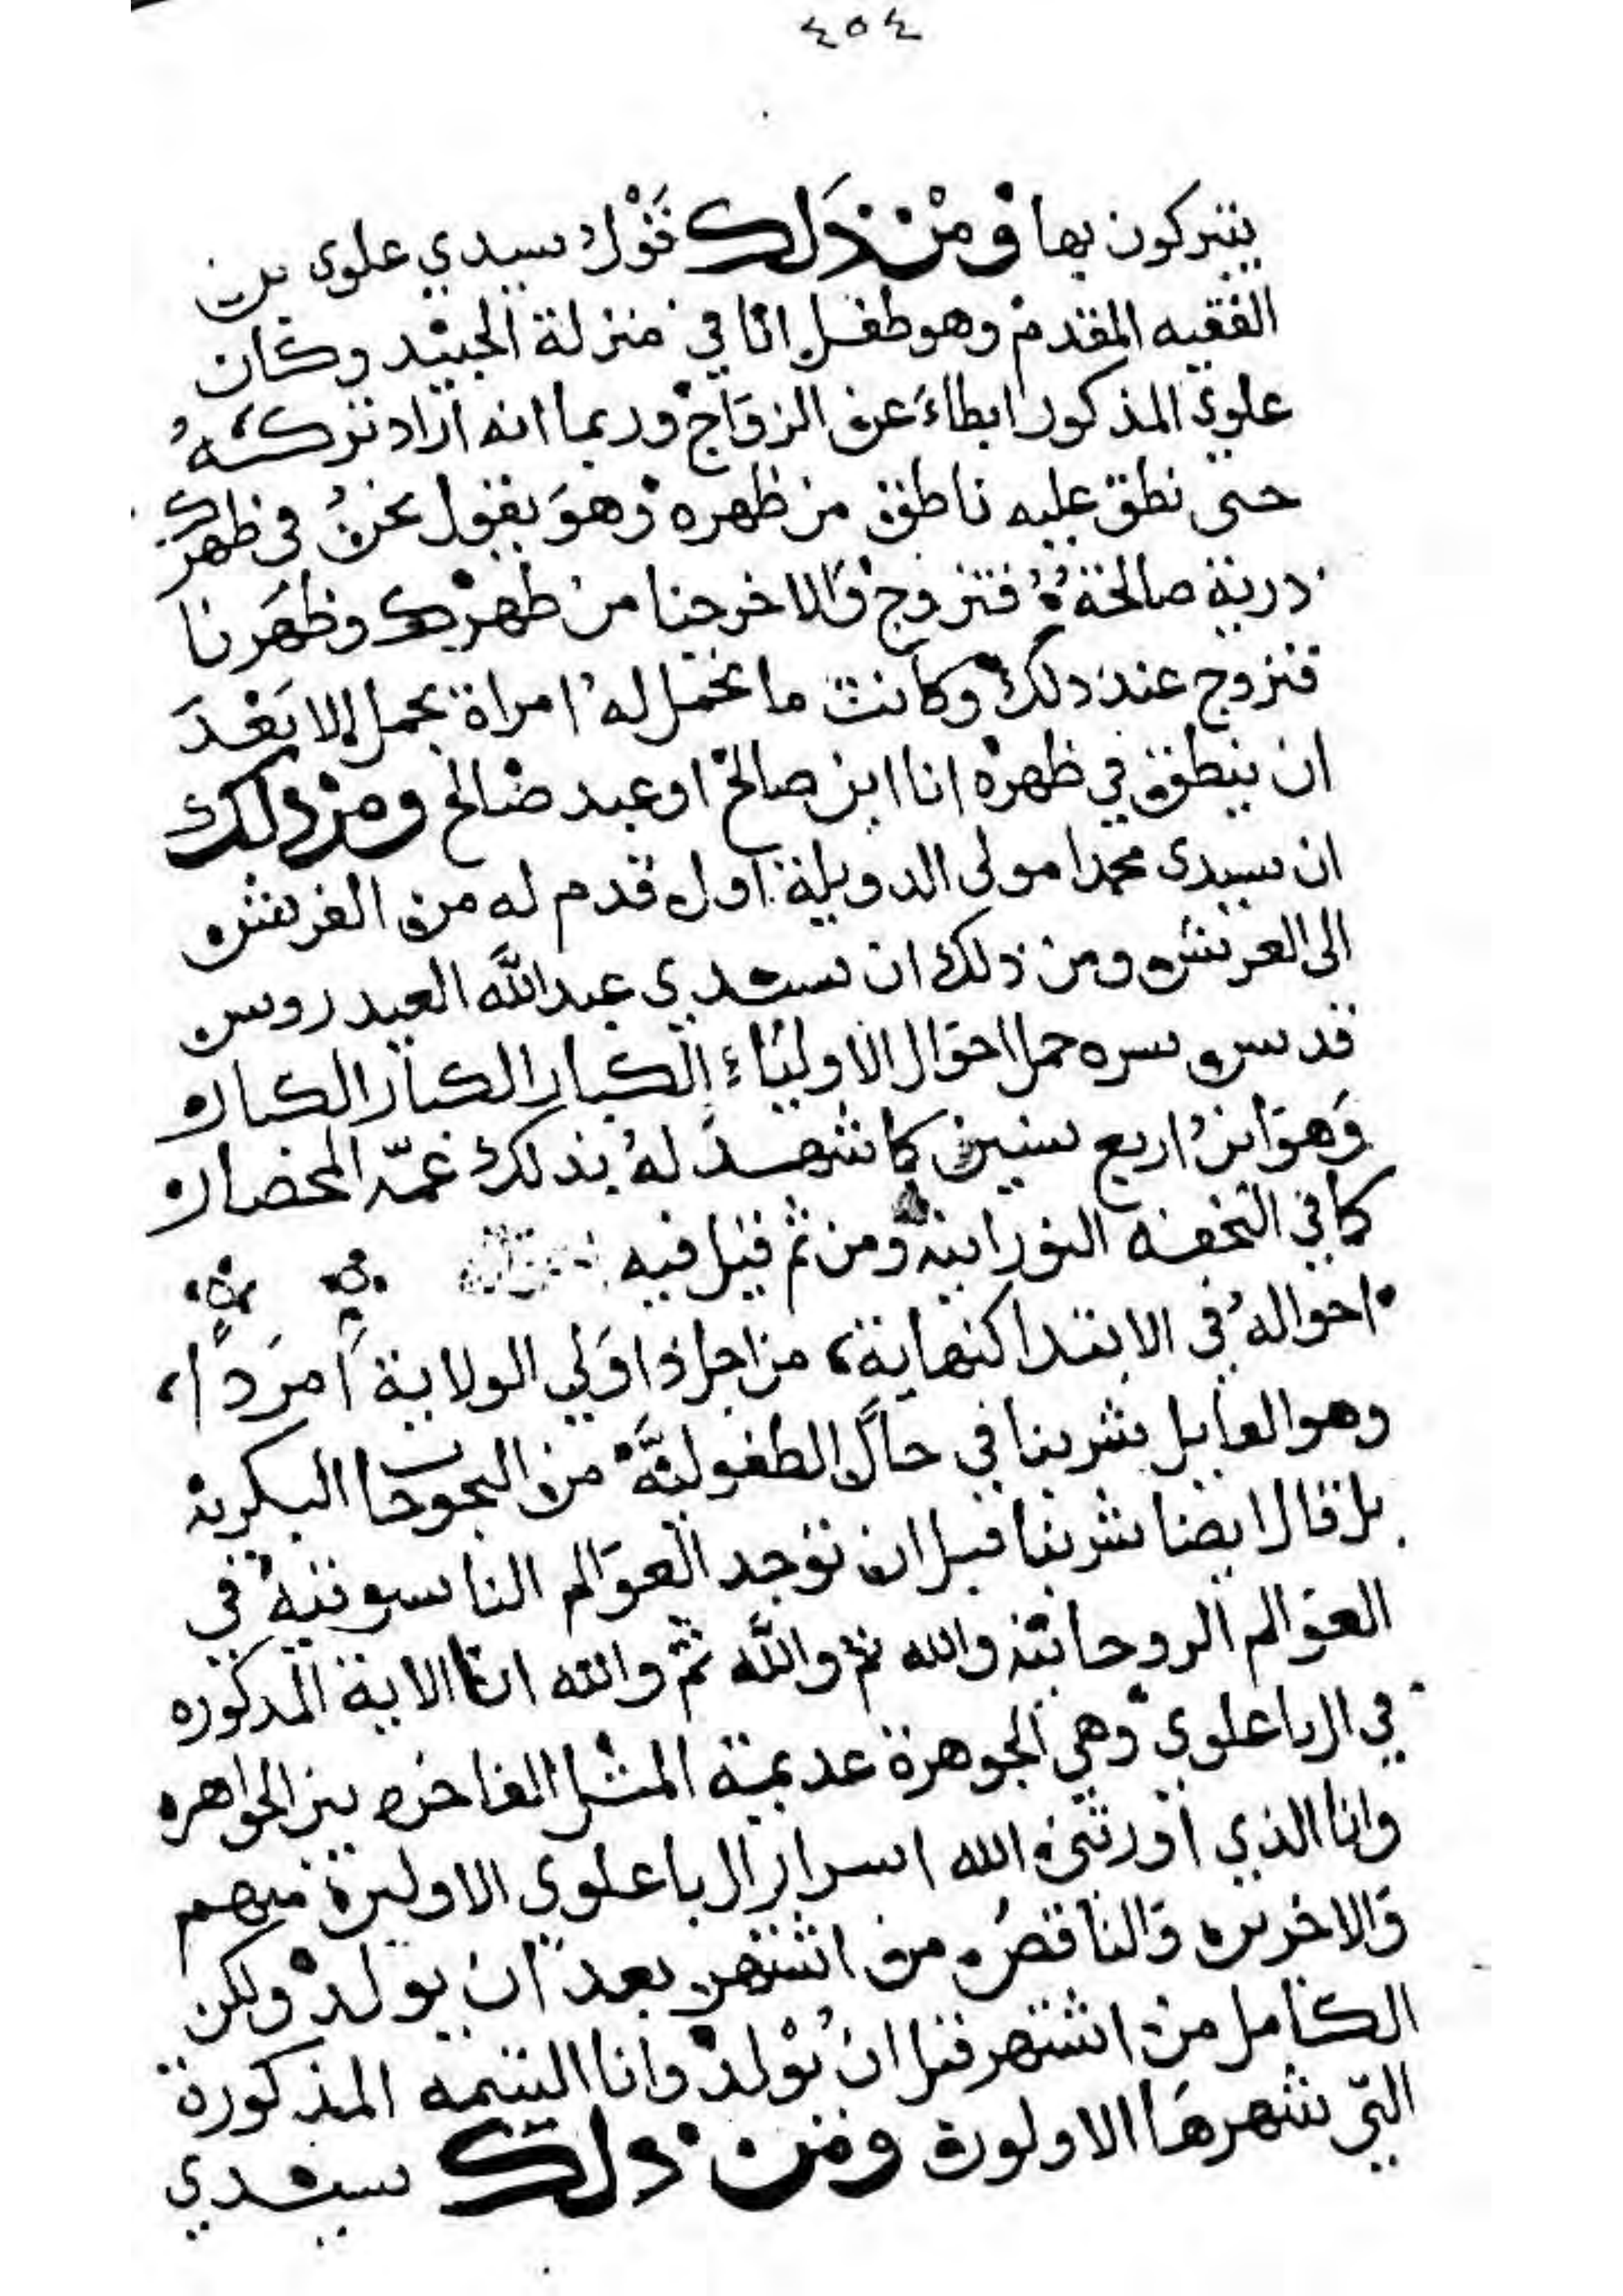 ٤٥٤
يتبركون بها ومن ذلك قول سيدي علوي بن
الفقيه المقدم وهو طفل انا في منزلة الجنيد وكان
علوي المذكور ابطاء عن الزواج وربما انه اراد تركه
حتى نطق عليه ناطق من ظهره وهو يقول نحن في ظهرك
درية صالحة فتزوج والا خرجنا من ظهرك وظهرنا
فتزوج عند ذلك وكانت ما تحمل له امراة بحمل الا بعد
ان ينطق في ظهره انا ابن صالح او عبد صالح ومن ذلك
ان سيدي محمدا مولى الدويلة اول قدم له من الفرش
الى العرش ومن ذلك ان سيدي عبد الله العيدروس
قدس سره حمل احوال الاولياء الكبار الكبار الكبار
وهو ابن اربع سنين كما شهد له بذلك عمه المحضار
كما في التحفة النورانية ومن ثم قيل فيه
احواله في الابتدا كنهاية، من اجل ذا ولي الولاية امردا،
وهو القايل شربنا في حال الطفولية من البحوحات البكرية
بل قال ايضا شربنا قبل ان توجد العوالم الناسوتية في
العوالم الروحانية والله ثم والله ثم والله انا الاية المذكوره
في ال باعلوي وهي الجوهرة عديمة المثل الفاخره بين الجواهر
وانا الذي اورثني الله اسرار ال باعلوي الاولين منهم
والاخرين والناقص من اشتهر بعد ان يولد ولكن
الكامل من اشتهر قبل ان يولد وانا اليتيمه المذكورة
التي شهرها الاولون ومن ذلك سيدي